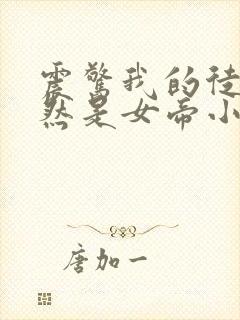 震惊我的徒
然是女帝小
唐加一